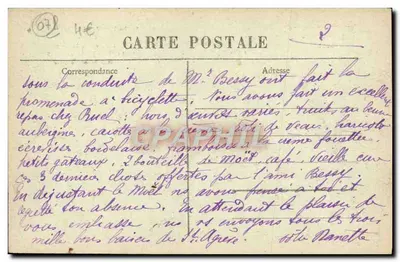 078
4€
2
CARTE POSTALE
Correspondance
Adresse
sous la conduite de Mr Bessy ont fait la
promenade à bicyclette. Nous avons fait un excellent
repas chez Buel : hors d'œuvres variés, truits au beurre
aubergine, carotte de veau, haricots
cerises bordelaise, framboises crème fouettée
petits gâteaux, 2 bouteilles de moët, café, vieille cure
ces 3 dernières choses offertes par l'ami Bessy.
En dégustant le Moët ns avons pensé à toi et
regretté ton absence. En attendant le plaisir de
vous embrasse, ns vs envoyons tous les trois
mille bons baisers de St Agrève
Nanette